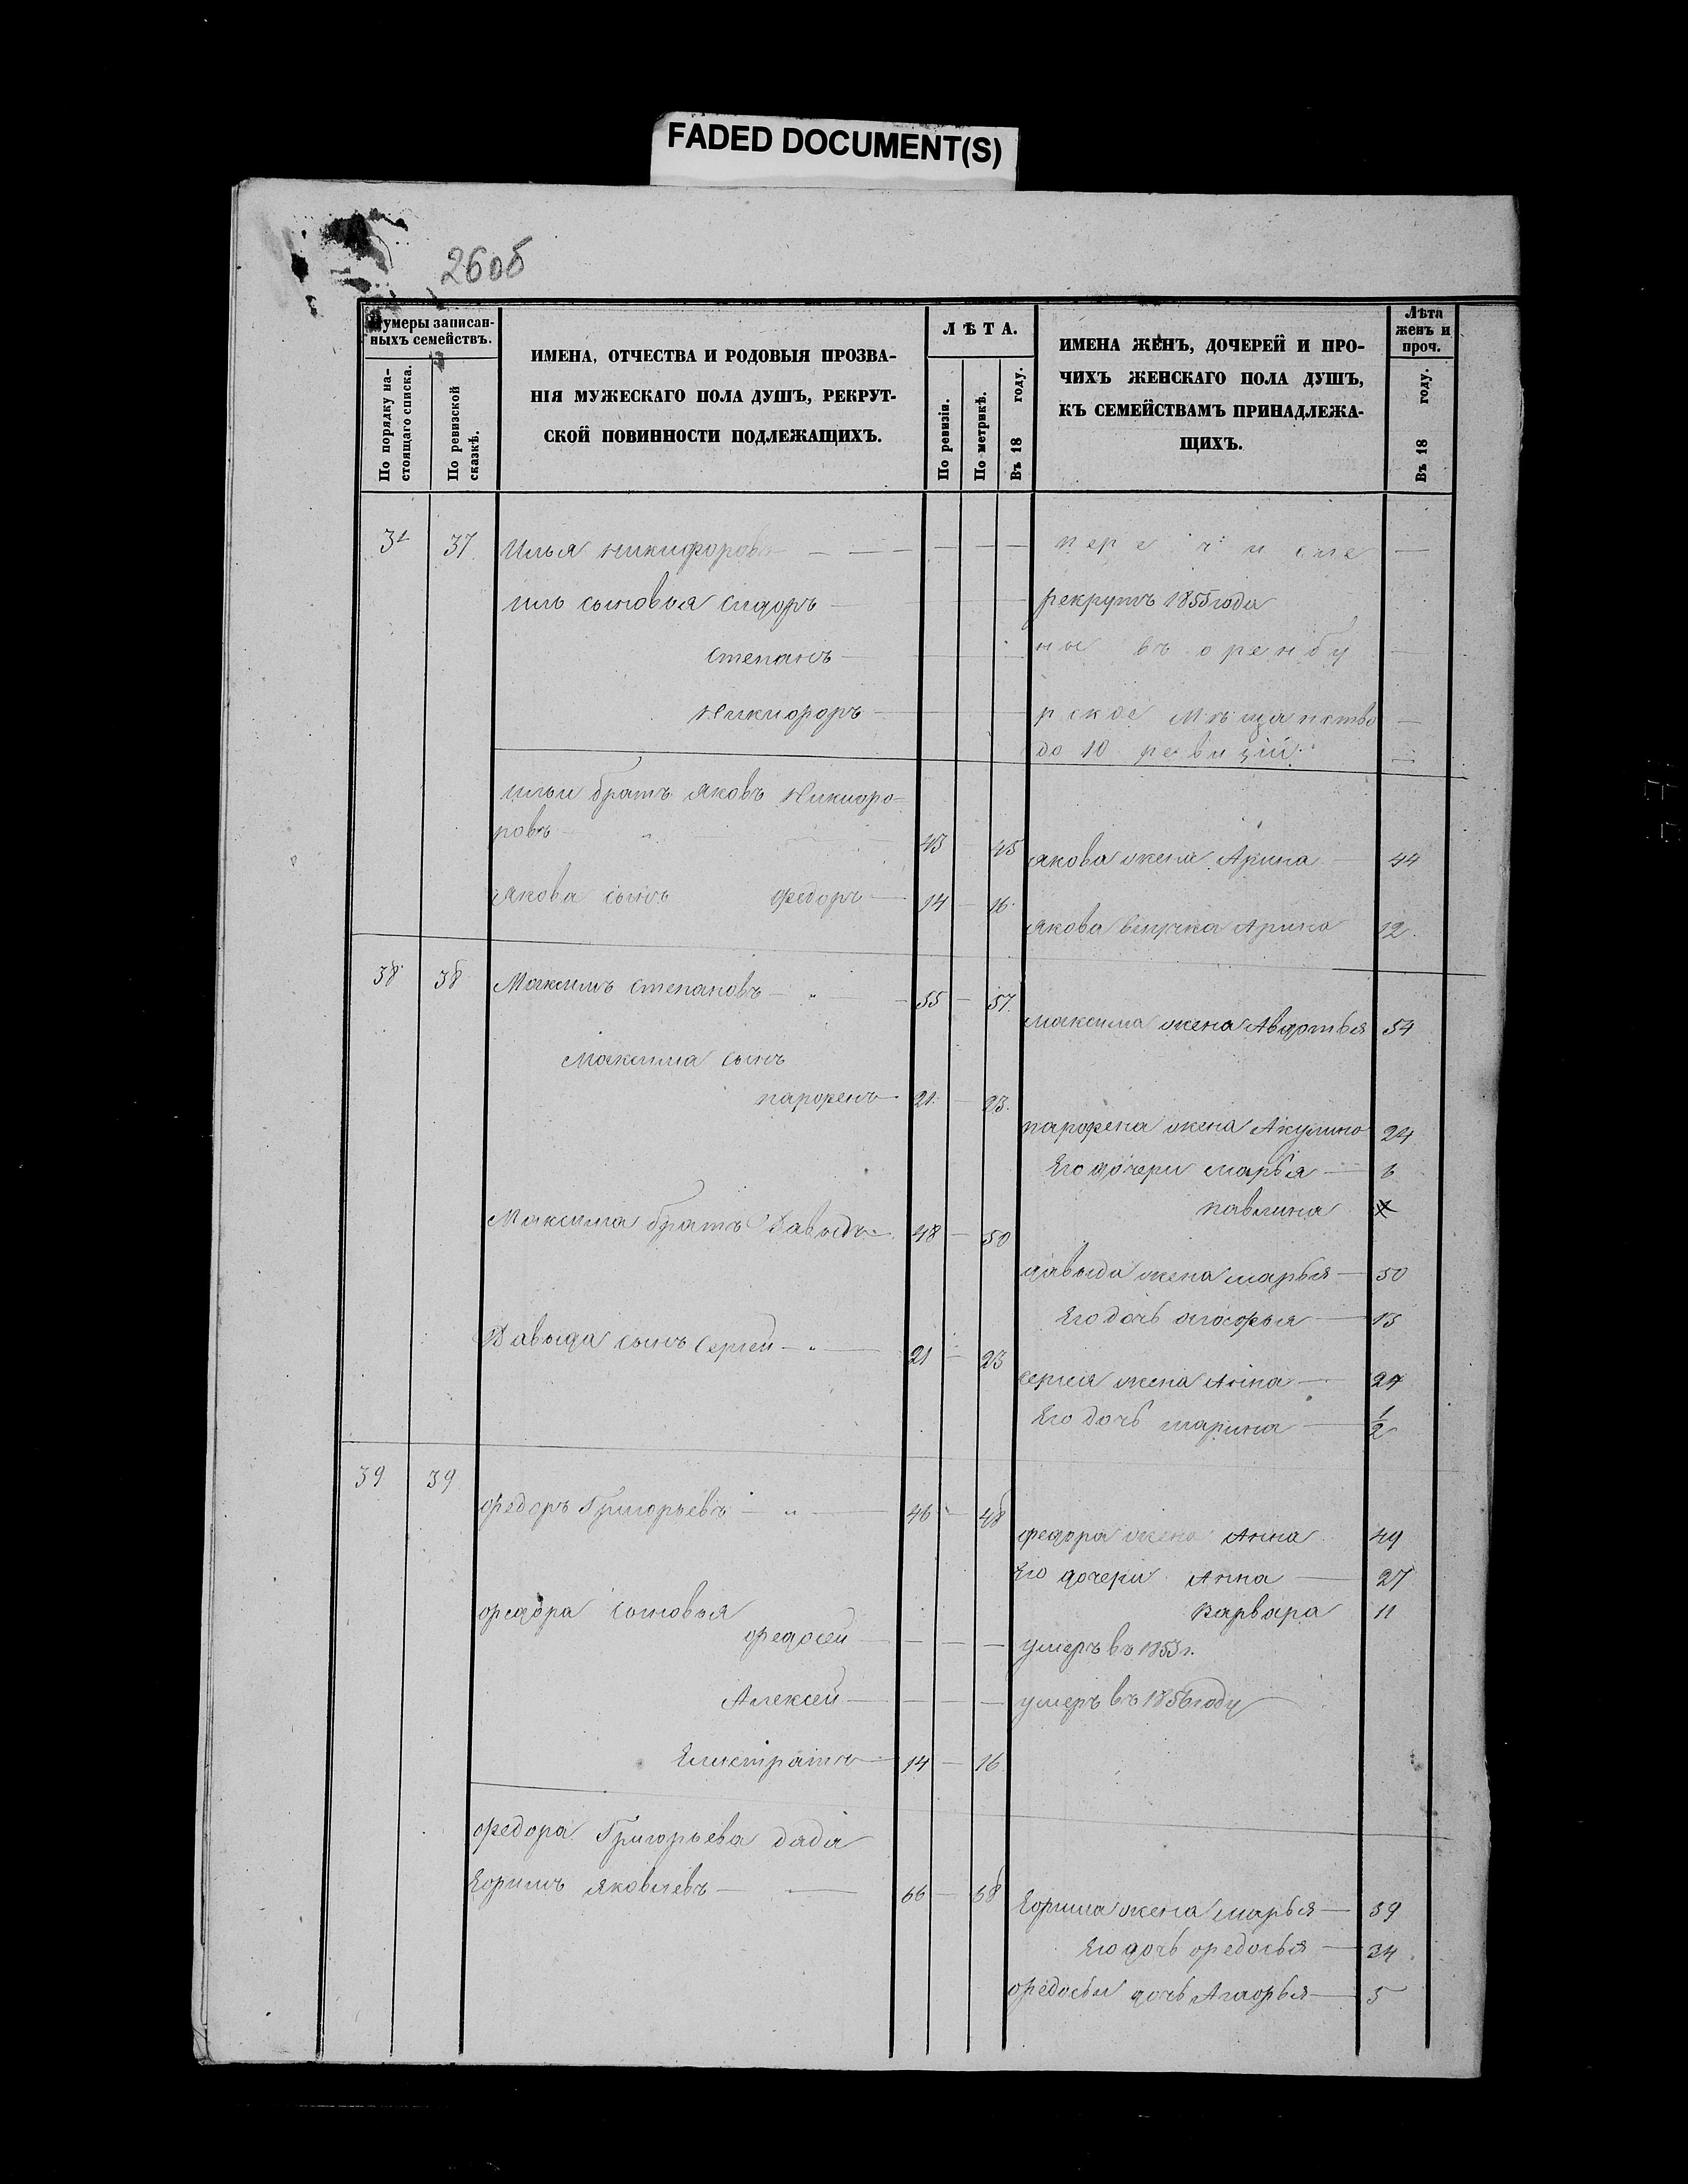 FADED DOCUMENT(S)
26об
Нумеры записан-
ныхъ семействъ.
По порядку на-
стоящаго списка.
По ревизской
сказкѣ.
ИМЕНА, ОТЧЕСТВА И РОДОВЫЯ ПРОЗВА-
НІЯ МУЖЕСКАГО ПОЛА ДУШЪ, РЕКРУТ-
СКОЙ ПОВИННОСТИ ПОДЛЕЖАЩИХЪ.
ЛѢТА.
По ревизіи.
По метрикѣ.
Въ 18 году.
ИМЕНА ЖЕНЪ, ДОЧЕРЕЙ И ПРО-
ЧИХЪ ЖЕНСКАГО ПОЛА ДУШЪ,
КЪ СЕМЕЙСТВАМЪ ПРИНАДЛЕЖА-
ЩИХЪ.
Лѣта
женъ и
проч.
Въ 18 году.
37 Илья Никифоровъ — — — — — — пере числе —
сыновья Сидоръ — рекрутъ 1855 года
Степанъ — ные въ оренбу —
Никифоръ — рское мѣщанство —
до 10 ревизіи
Ильи братъ Яковъ Никифо-
ровъ — 43 45 Якова жена Арина — 44
Якова сынъ Федоръ — 14 — 16
Якова внучка Арина 12
38 38 Максимъ Степановъ — „ — 55 — 57
Максима жена Авдотья 54
Максима сынъ
парфенъ 21 — 23
парфена жена Акулина 24
Его дочери марья — 6
павлина
Максима братъ Давыдъ 48 — 50
давыда жена марья — 50
Его дочь агафья — 15
Давыда сынъ Сергей — „ — 21 — 23
сергея жена Анна —
Его дочь марина — 1/2
39 39 Федоръ Григорьевъ — „ — 46 — 48
федора жена Анна 49
Его дочери Анна — 27
Варвара 11
федора сыновья
федосей — — — — умеръ въ 1853 г.
Алексей — — — — умеръ въ 1856 году
Елистратъ — 14 — 16
Федора Григорьева дядя
Ефимъ Яковлевъ — — 66 — 68
Ефима жена марья — 59
Его дочь федосья — 34
федосьи дочь Агафья — 5